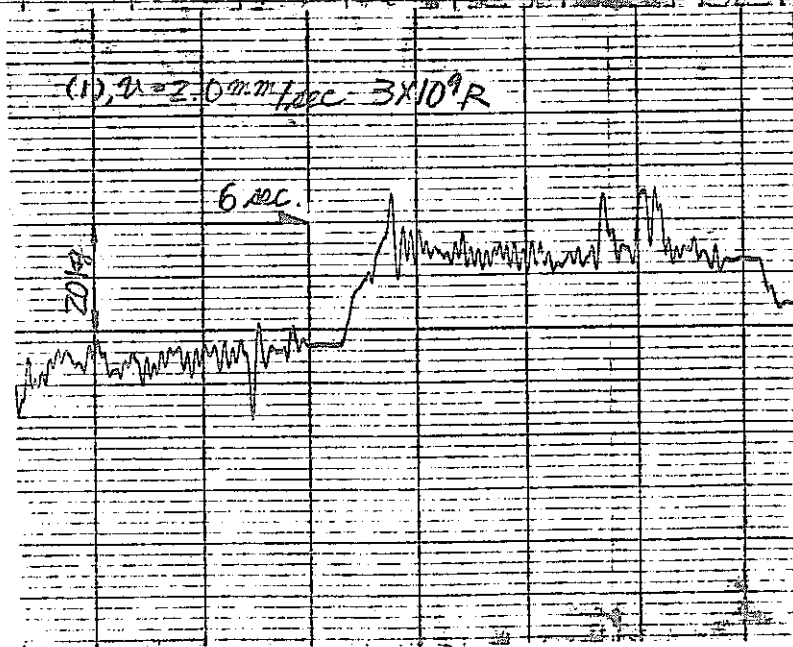 (1), v = 2.0 mm/sec - 3X10⁹R
6 sec.
20